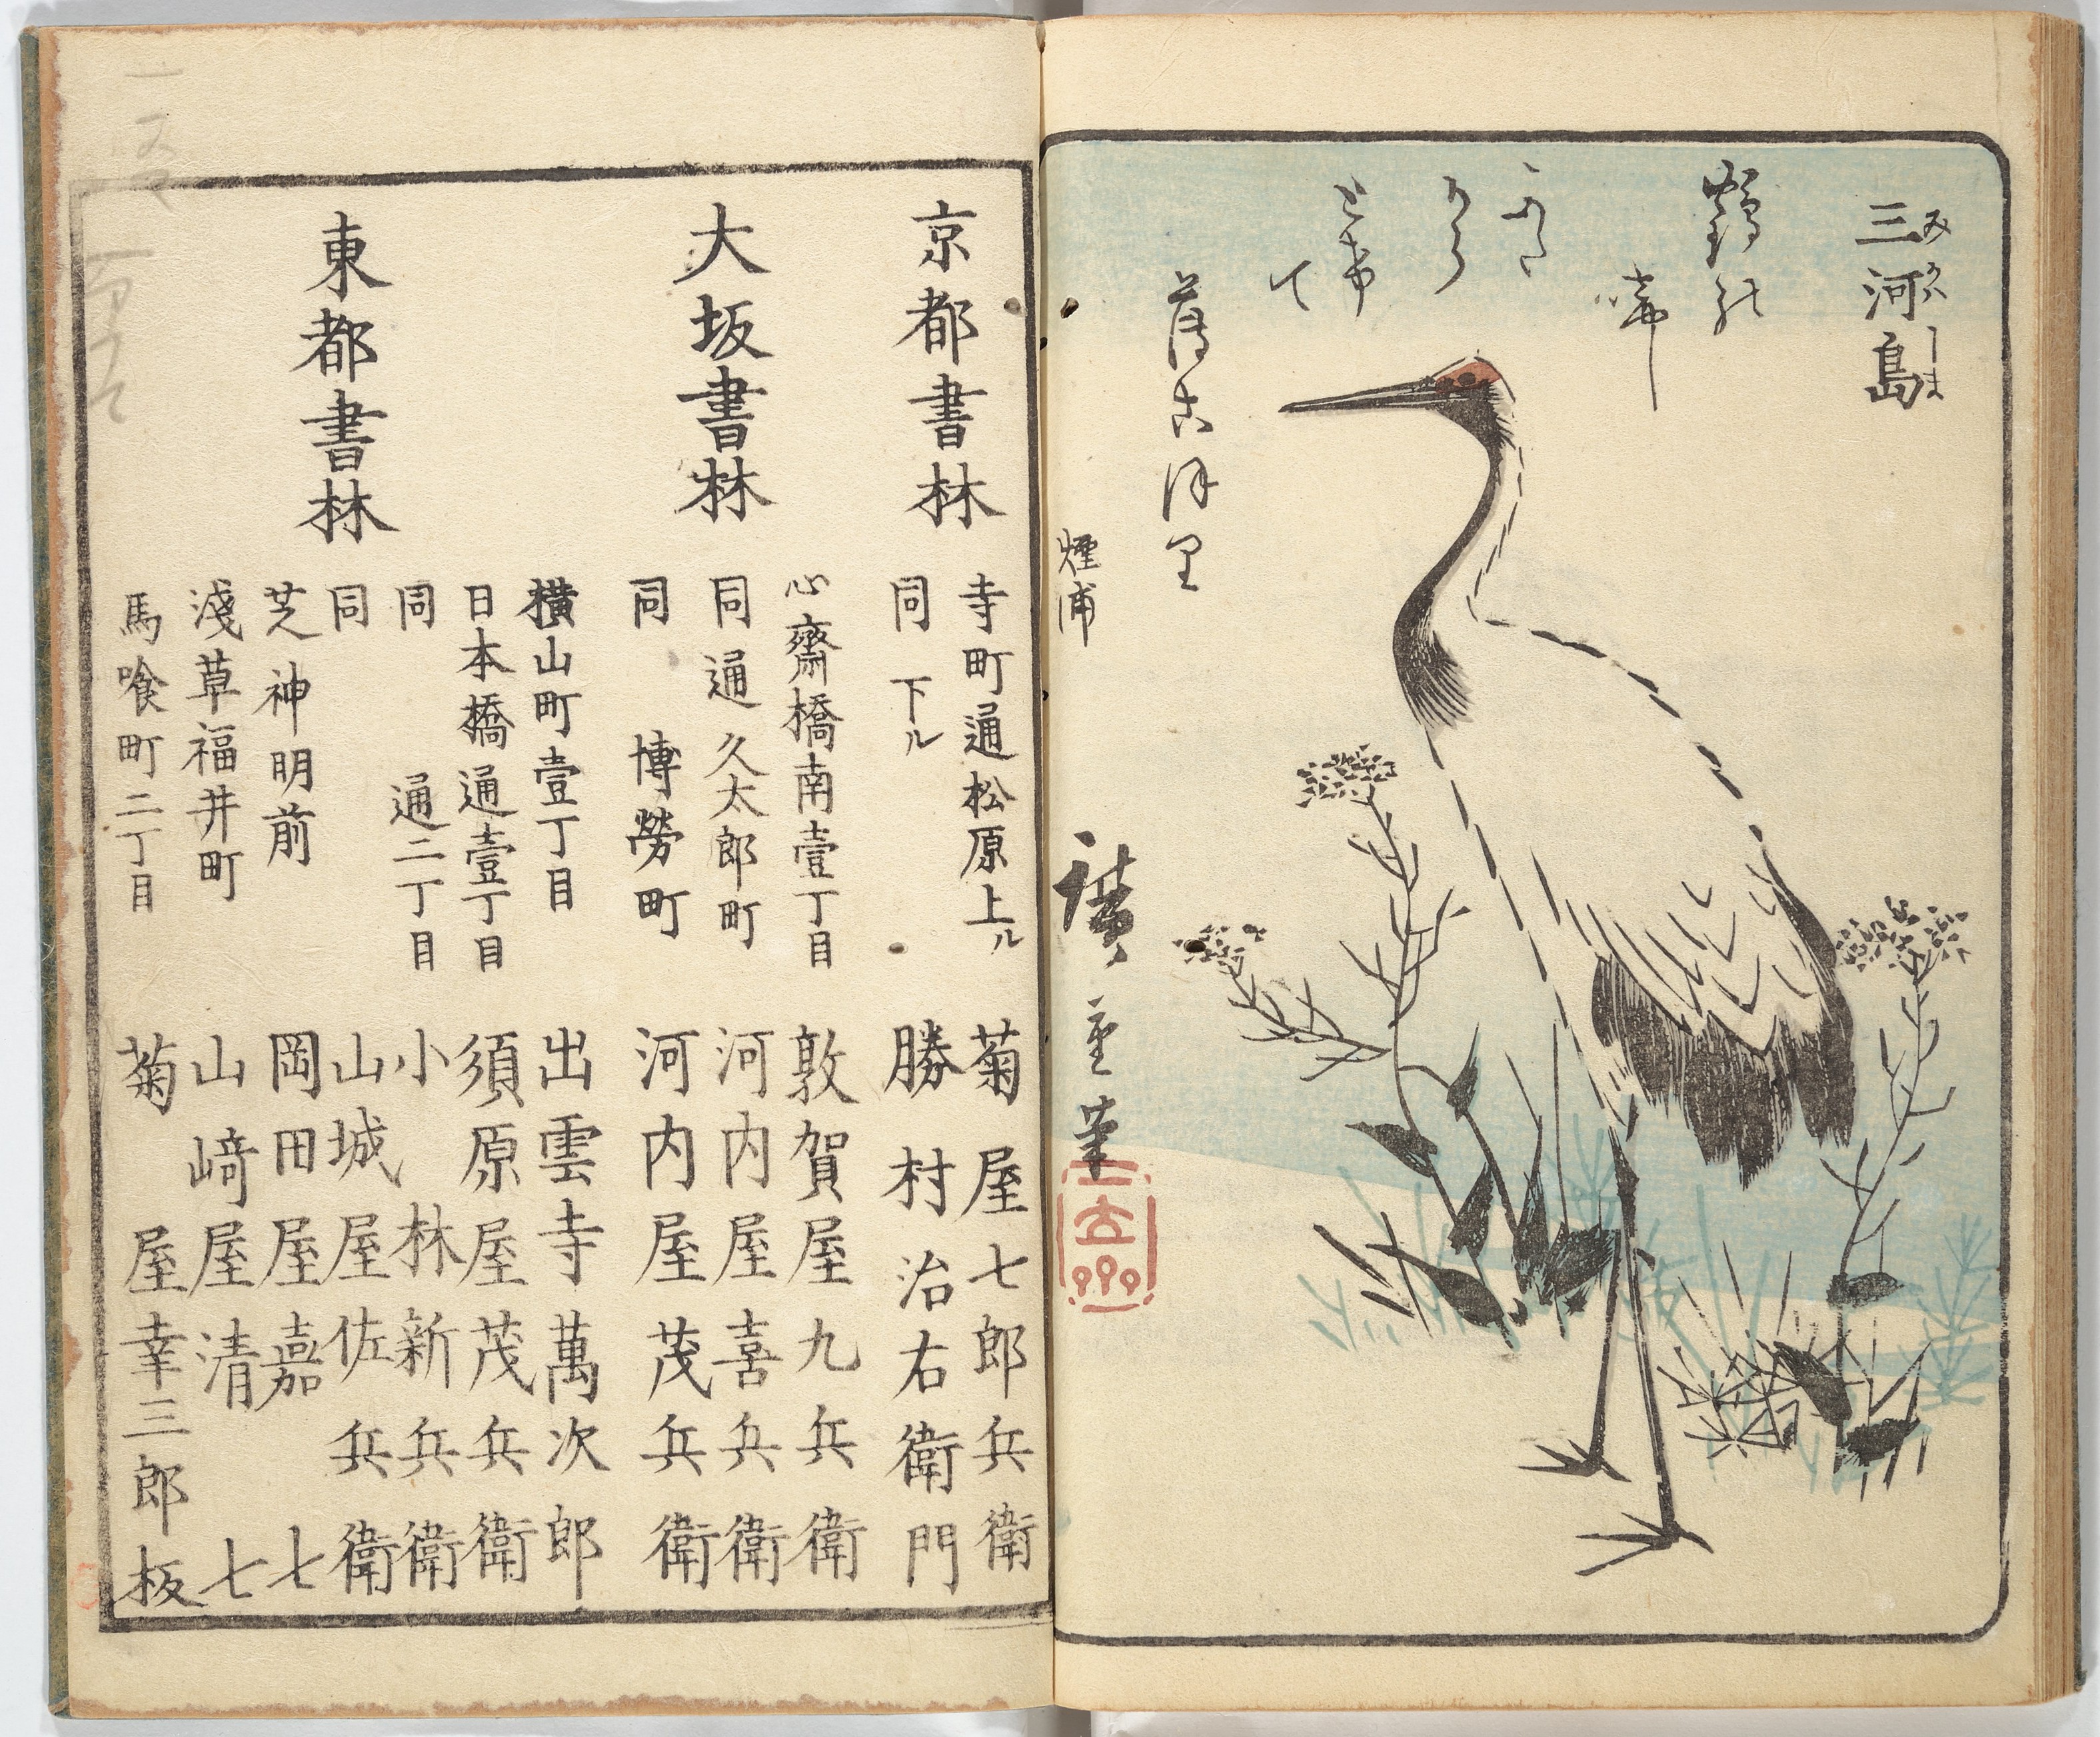 三河島
みかハしま
鶴の
嘴
煙浦
廣重筆
京都書林
寺町通松原上ル 菊屋七郎兵衛
同 下ル 勝村治右衛門
大坂書林
心齋橋南壹丁目 敦賀屋九兵衛
同通久太郎町 河内屋喜兵衛
同 博勞町 河内屋茂兵衛
東都書林
横山町壹丁目 出雲寺萬次郎
日本橋通壹丁目 須原屋茂兵衛
同 通二丁目 小林新兵衛
同 山城屋佐兵衛
芝神明前 岡田屋嘉七
淺草福井町 山﨑屋清七
馬喰町二丁目 菊屋幸三郎板